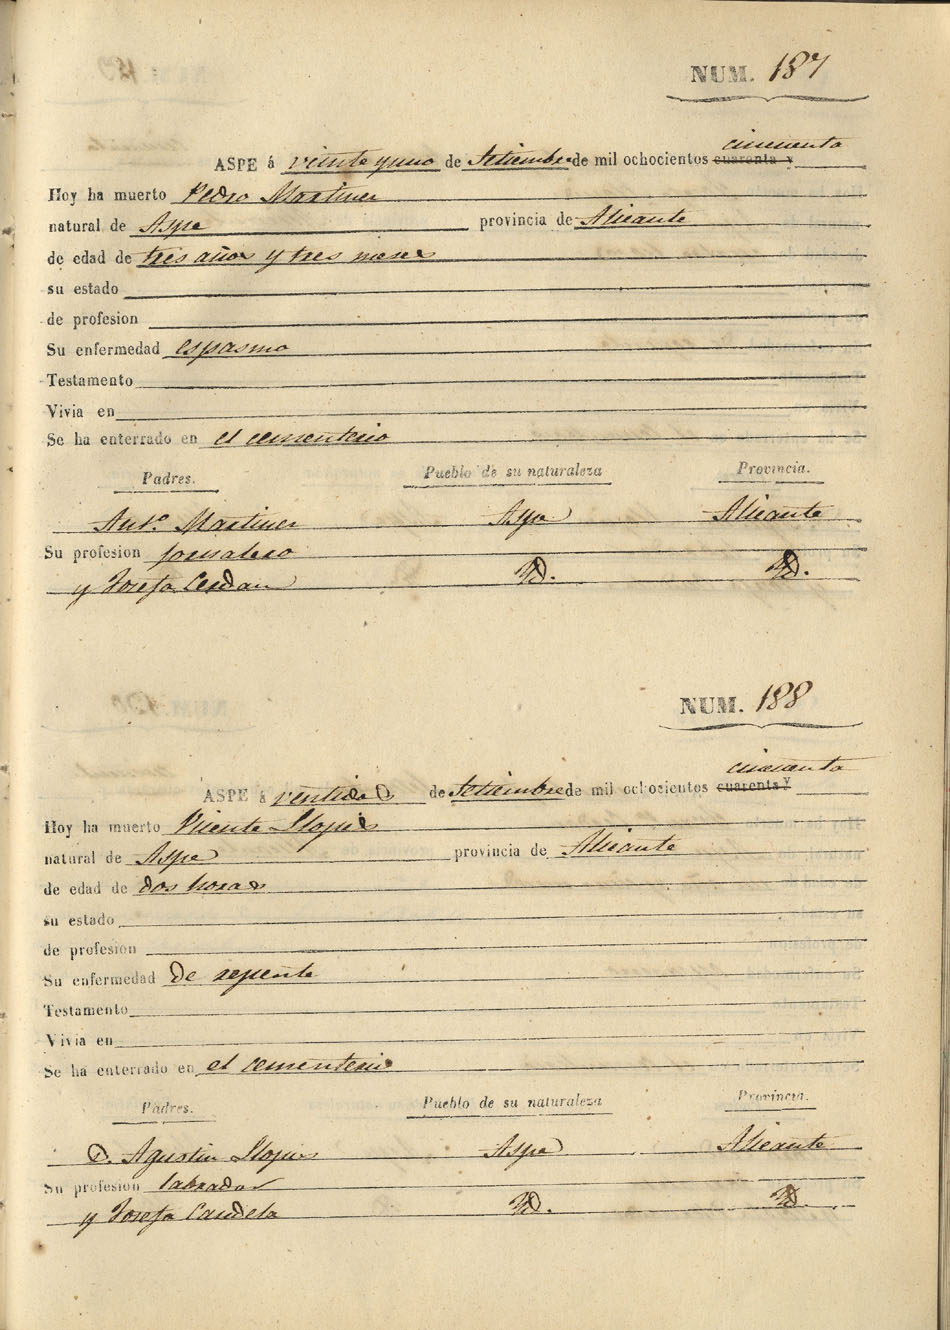 NUM. 187
cincuenta
ASPE á veinte y uno de Setiembre de mil ochocientos cuarenta y
Hoy ha muerto Pedro Martinez
natural de Aspe provincia de Alicante
de edad de tres años y tres meses
su estado
de profesion
Su enfermedad espasmo
Testamento
Vivia en
Se ha enterrado en el cementerio
Padres. Pueblo de su naturaleza Provincia.
Ant.º Martinez Aspe Alicante
Su profesion jornalero
y Josefa Cerdan Yd. Yd.
NUM. 188
cincuenta
ASPE á ventidos de Setiembre de mil ochocientos cuarenta y
Hoy ha muerto Vicente Llopis
natural de Aspe provincia de Alicante
de edad de dos horas
su estado
de profesion
Su enfermedad de repente
Testamento
Vivia en
Se ha enterrado en el cementerio
Padres. Pueblo de su naturaleza Provincia.
D. Agustin Llopis Aspe Alicante
Su profesion labrador
y Josefa Candela Yd. Yd.